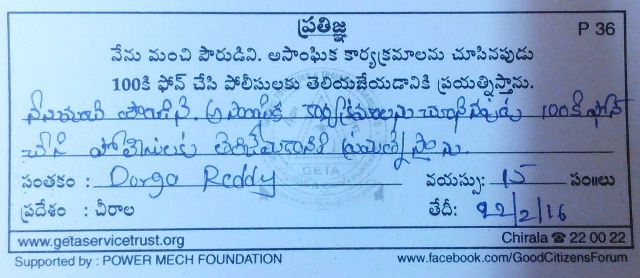 ప్రతిజ్ఞ
P 36
నేను మంచి పౌరుడిని. అసాంఘిక కార్యక్రమాలను చూసినపుడు
100కి ఫోన్ చేసి పోలీసులకు తెలియజేయడానికి ప్రయత్నిస్తాను.
నేను మంచి పౌరుడిని. అసాంఘిక కార్యక్రమాలను చూసినపుడు 100కి ఫోన్
చేసి పోలీసులకు తెలియజేయడానికి ప్రయత్నిస్తాను.
సంతకం : Dorga Reddy వయస్సు: 15 సం॥లు
ప్రదేశం : చీరాల తేదీ: 22/2/16
GETA
www.getaservicetrust.org Chirala ☎ 22 00 22
Supported by : POWER MECH FOUNDATION www.facebook.com/GoodCitizensForum